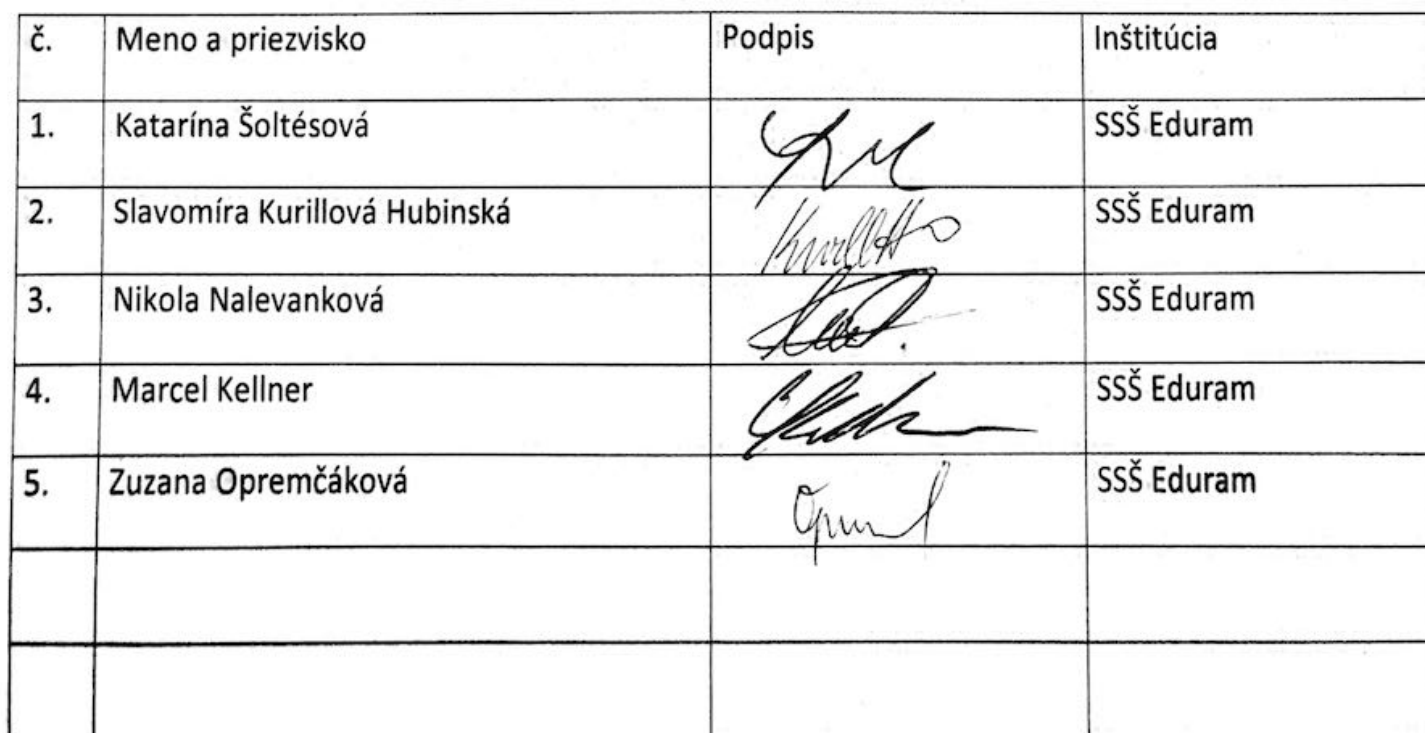 č. Meno a priezvisko Podpis Inštitúcia
1. Katarína Šoltésová SSŠ Eduram
2. Slavomíra Kurillová Hubinská SSŠ Eduram
3. Nikola Nalevanková SSŠ Eduram
4. Marcel Kellner SSŠ Eduram
5. Zuzana Opremčáková SSŠ Eduram